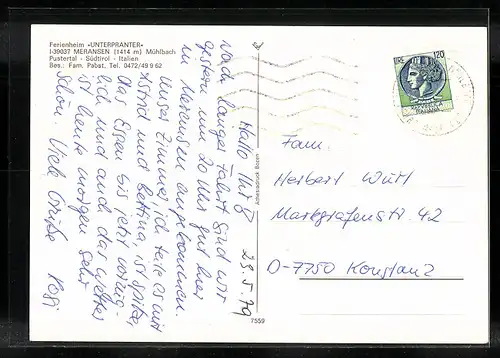 Ferienheim «UNTERPRANTER»
I-39037 MERANSEN (1414 m) Mühlbach
Pustertal - Südtirol - Italien
Bes.: Fam. Pabst. Tel. 0472/49 9 62
29.5.79
Hallo Ihr 8
Nach langer Fahrt sind wir
gestern um 20 Uhr gut hier
in Meransen angekommen.
Unser Zimmer, ich teile es mit
und Bettina, ist
Das Essen bis jetzt vorzüg-
lich und auch das Wetter
ist heute morgen sehr
schön. Viele Grüße
Adressdruck Bozen
7559
LIRE 120
Fam.
Herbert Wurl
Markgrafenstr. 42
D-7750 Konstanz